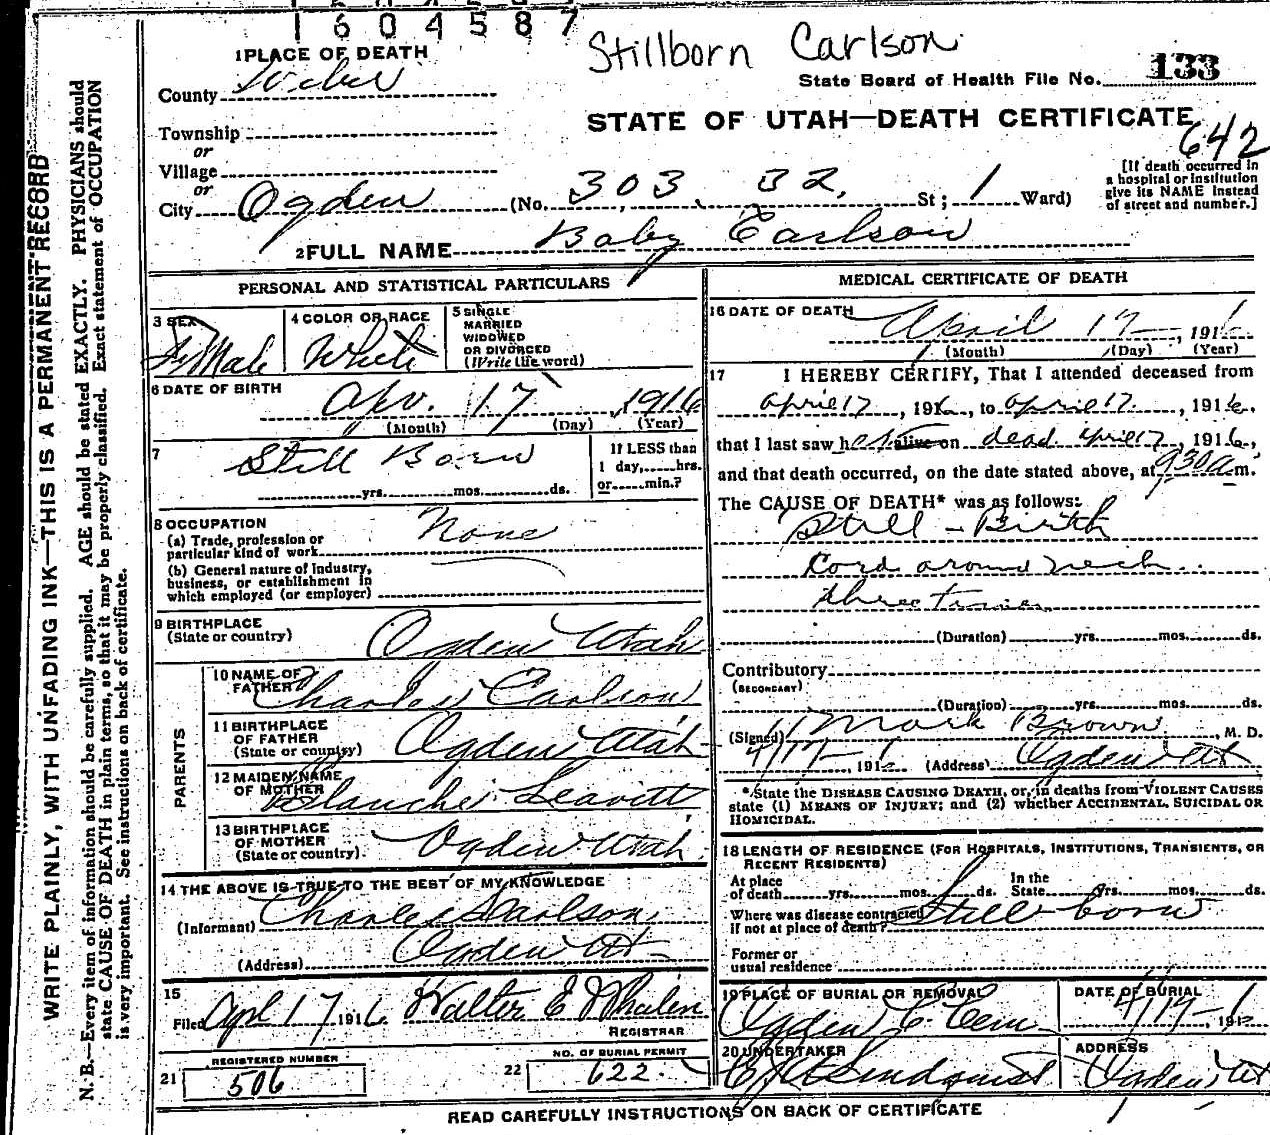 1604587
Stillborn Carlson
1 PLACE OF DEATH
County Weber
State Board of Health File No. 133
STATE OF UTAH—DEATH CERTIFICATE
642
Township
or
Village
or
City Ogden (No. 303 32. St; 1 Ward)
[If death occurred in
a hospital or institution
give its NAME instead
of street and number.]
2 FULL NAME Baby Carlson
PERSONAL AND STATISTICAL PARTICULARS
3 SEX
feMale
4 COLOR OR RACE
White
5 SINGLE
MARRIED
WIDOWED
OR DIVORCED
(Write the word)
6 DATE OF BIRTH
Apr. 17, 1916
(Month) (Day) (Year)
7
Still Born
yrs. mos. ds.
If LESS than
1 day, hrs.
or min.?
8 OCCUPATION
(a) Trade, profession or
particular kind of work None
(b) General nature of industry,
business, or establishment in
which employed (or employer)
9 BIRTHPLACE
(State or country) Ogden Utah
PARENTS
10 NAME OF
FATHER Charles Carlson
11 BIRTHPLACE
OF FATHER
(State or country) Ogden Utah
12 MAIDEN NAME
OF MOTHER Blanche Leavitt
13 BIRTHPLACE
OF MOTHER
(State or country) Ogden Utah
14 THE ABOVE IS TRUE TO THE BEST OF MY KNOWLEDGE
(Informant) Charles Carlson
(Address) Ogden Ut
15
Filed Apl 17 1916 Walter E Whalen
REGISTRAR
REGISTERED NUMBER
21 506
NO. OF BURIAL PERMIT
22 622
MEDICAL CERTIFICATE OF DEATH
16 DATE OF DEATH
April 17, 1916
(Month) (Day) (Year)
17 I HEREBY CERTIFY, That I attended deceased from
April 17, 1916, to April 17, 1916,
that I last saw h alive on dead April 17, 1916,
and that death occurred, on the date stated above, at 930 a m.
The CAUSE OF DEATH* was as follows:
Still-Birth
Cord around neck
three times
(Duration) yrs. mos. ds.
Contributory
(SECONDARY)
(Duration) yrs. mos. ds.
(Signed) H Mark Brown, M. D.
4/17-, 1916 (Address) Ogden Ut
*State the DISEASE CAUSING DEATH, or, in deaths from VIOLENT CAUSES
state (1) MEANS OF INJURY; and (2) whether ACCIDENTAL, SUICIDAL OR
HOMICIDAL.
18 LENGTH OF RESIDENCE (FOR HOSPITALS, INSTITUTIONS, TRANSIENTS, OR
RECENT RESIDENTS)
At place
of death yrs. mos. ds.
In the
State yrs. mos. ds.
Where was disease contracted
if not at place of death? Still-born
Former or
usual residence
19 PLACE OF BURIAL OR REMOVAL
Ogden C. Cem
DATE OF BURIAL
4/19-, 191
20 UNDERTAKER
Lindquist
ADDRESS
Ogden Ut
READ CAREFULLY INSTRUCTIONS ON BACK OF CERTIFICATE
WRITE PLAINLY, WITH UNFADING INK—THIS IS A PERMANENT RECORD
N. B.—Every item of information should be carefully supplied. AGE should be stated EXACTLY. PHYSICIANS should
state CAUSE OF DEATH in plain terms, so that it may be properly classified. Exact statement of OCCUPATION
is very important. See instructions on back of certificate.